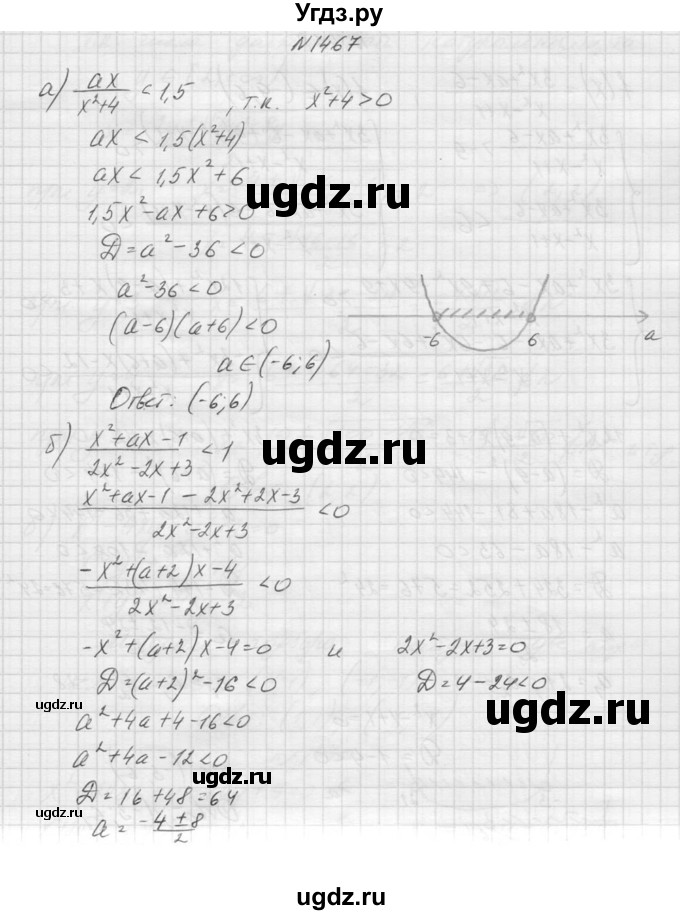 Угдз.ру
N1467
а) ax/(x²+4) < 1,5 , т.к. x²+4>0
ax < 1,5(x²+4)
ax < 1,5x²+6
ugdz.ru
ugdz.ru
1,5x²-ax+6>0
D=a²-36<0
a²-36<0
(a-6)(a+6)<0
-6 6 a
a∈(-6;6)
Ответ: (-6;6)
б) (x²+ax-1)/(2x²-2x+3) < 1
ugdz.ru
(x²+ax-1-2x²+2x-3)/(2x²-2x+3) < 0
(-x²+(a+2)x-4)/(2x²-2x+3) < 0
-x²+(a+2)x-4=0 и 2x²-2x+3=0
D=(a+2)²-16<0 D=4-24<0
ugdz.ru
ugdz.ru
a²+4a+4-16<0
a²+4a-12<0
ugdz.ru
D=16+48=64
ugdz.ru
a=(-4±8)/2
ugdz.ru